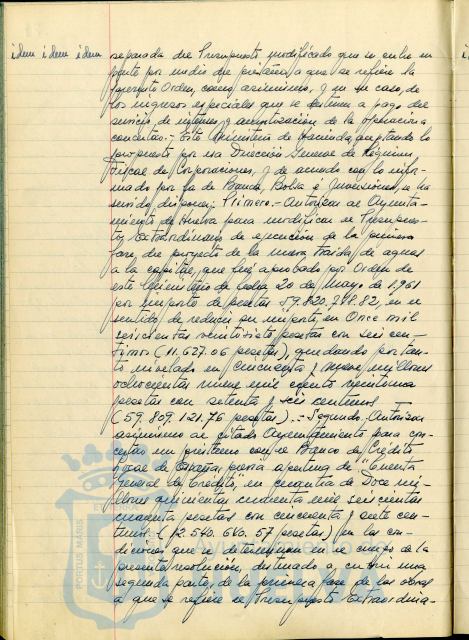 idem idem idem
separada del Presupuesto modificado que se cubre en
parte por medio del préstamo a que se refiere la
presente Orden, como asimismo, y en su caso, de
los ingresos especiales que se destinen a pago del
servicio de intereses y amortización de la operación a
concertar.- Este Ministerio de Hacienda, aceptando lo
propuesto por esa Dirección General de Régimen
Fiscal de Corporaciones, y de acuerdo con lo infor-
mado por la de Banca, Bolsa e Inversiones, se ha
servido disponer: Primero.- Autorizar al Ayunta-
miento de Huelva para modificar el Presupues-
to Extraordinario de ejecución de la primera
fase del proyecto de la nueva traída de aguas
a la capital, que fué aprobado por Orden de
este Ministerio de fecha 20 de Mayo de 1.961
por importe de pesetas 59.820.748.82, en el
sentido de reducir su importe en Once mil
seiscientas veintisiete pesetas con seis cen-
timos (11.627.06 pesetas), quedando por tan-
to nivelado en Cincuenta y nueve millones
ochocientas nueve mil ciento veintiuna
pesetas con setenta y seis centimos
(59.809.121.76 pesetas).- Segundo. Autorizar
asimismo al citado Ayuntamiento para con-
certar un préstamo con el Banco de Crédito
Local de España, previa apertura de "Cuenta
General de Crédito", en cuantía de Doce mi-
llones quinientas cuarenta mil seiscientas
cincuenta pesetas con cincuenta y siete cen-
timos (12.540.650.57 pesetas) en las con-
diciones que se determinan en el cuerpo de la
presente resolución, destinado a cubrir una
segunda parte de la primera fase de las obras
a que se refiere el Presupuesto Extraordina-
PORTUS MARIS
ET TERRAE
Ayuntamiento
HUELVA